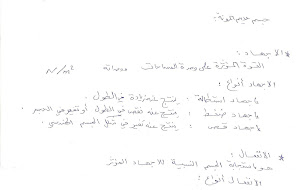 جسم عديم المرونة:
* الإجهاد:
القوة المؤثرة على وحدة المساحات ووحداته N/m²
الإجهاد أنواع:
١- إجهاد استطالة: ينتج عنه زيادة في الطول.
٢- إجهاد ضغط: ينتج عنه نقص في الطول أو تغير في الحجم.
٣- إجهاد قص: ينتج عنه تغير في شكل الجسم الهندسي.
* الانفعال:
هو استجابة الجسم النسبية للإجهاد المؤثر
الانفعال أنواع: